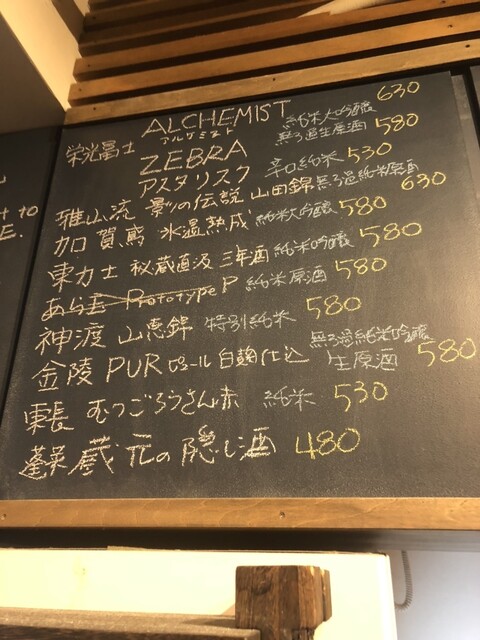 ALCHEMIST 純米大吟醸 630
アルケミスト
栄光冨士 ZEBRA 無ろ過生原酒 580
アスタリスク 辛口純米 530
雅山流 影の伝説 山田錦 無ろ過純米原酒 630
加賀鳶 氷温熟成 純米大吟醸 580
東力士 秘蔵直汲 三年酒 純米吟醸 580
あら玉 Prototype P 純米原酒 580
神渡 山恵錦 特別純米 580
金陵 PUR ピュール 白麹仕込 無ろ過純米吟醸 生原酒 580
東長 むつごろうさん赤 純米 530
蓬莱 蔵元の隠し酒 480
to
E.